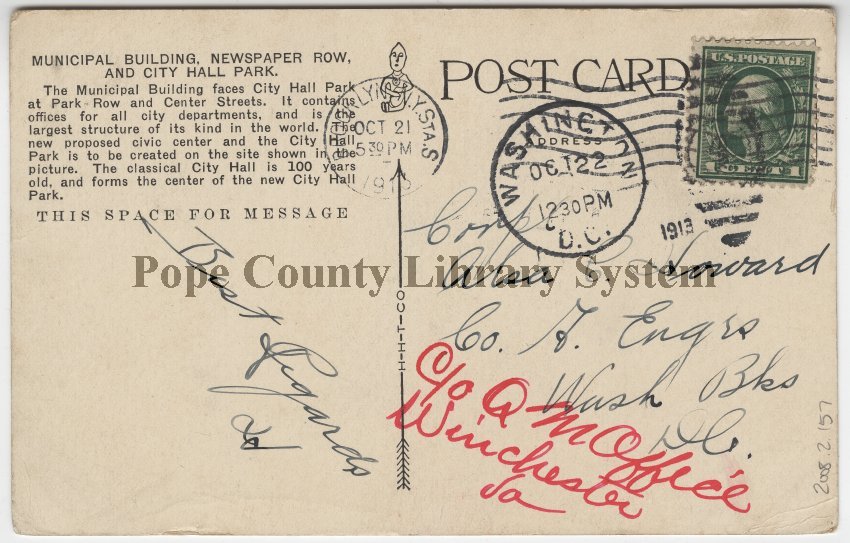 MUNICIPAL BUILDING, NEWSPAPER ROW,
AND CITY HALL PARK.
The Municipal Building faces City Hall Park
at Park Row and Center Streets. It contains
offices for all city departments, and is the
largest structure of its kind in the world. The
new proposed civic center and the City Hall
Park is to be created on the site shown in the
picture. The classical City Hall is 100 years
old, and forms the center of the new City Hall
Park.
THIS SPACE FOR MESSAGE
POST CARD
ADDRESS
U.S. POSTAGE
N.Y. STA. S
OCT 21
5 30 PM
WASHINGTON
OCT 22
12 30 PM
D.C.
1913
Best Regards
Corp
Howard
Co. A. Engrs
Wash Bks
D.C.
c/o Q M Office
Winchester
Va
H-H-T-CO
Pope County Library System
2008.2.157